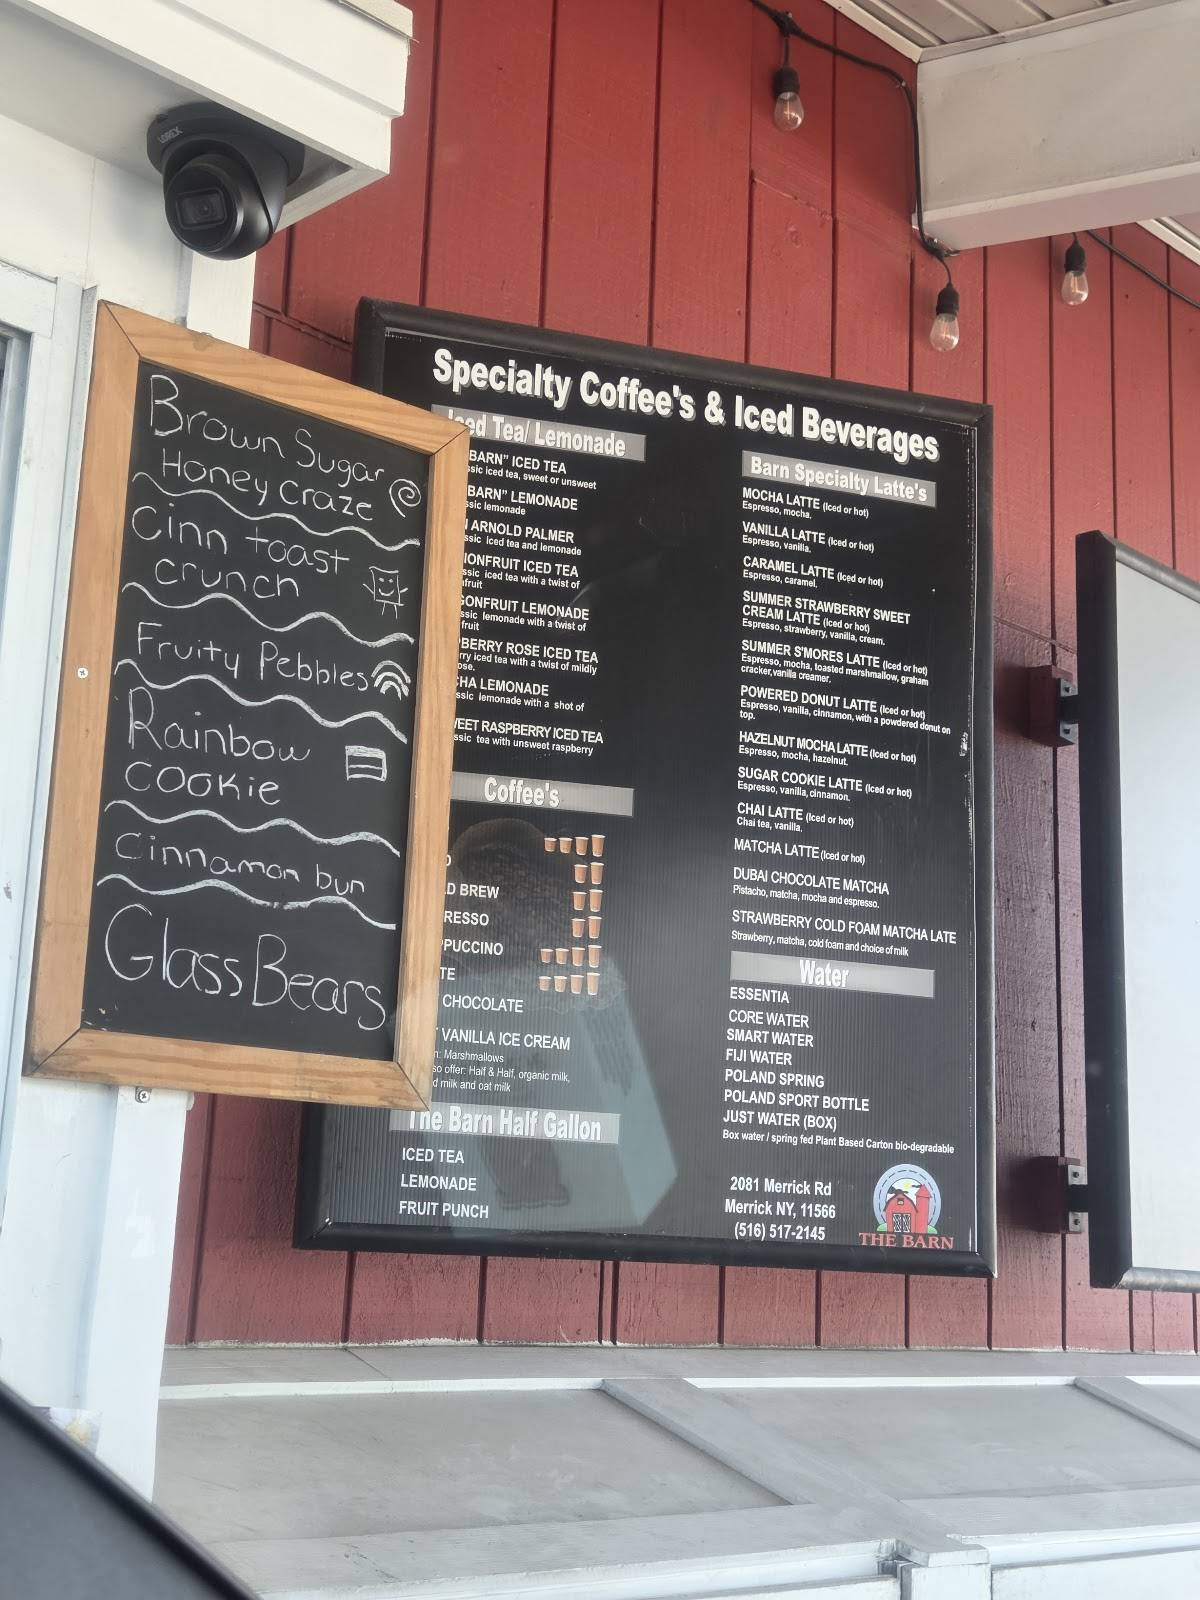 LOREX
Brown Sugar
Honey Craze
Cinn toast
crunch
Fruity Pebbles
Rainbow
COOKIE
Cinnamon bun
Glass Bears
Specialty Coffee's & Iced Beverages
Iced Tea/ Lemonade
BARN" ICED TEA
ssic iced tea, sweet or unsweet
BARN" LEMONADE
ssic lemonade
ARNOLD PALMER
ssic iced tea and lemonade
ONFRUIT ICED TEA
ssic iced tea with a twist of
fruit
GONFRUIT LEMONADE
ssic lemonade with a twist of
fruit
BERRY ROSE ICED TEA
rry iced tea with a twist of mildly
ose.
CHA LEMONADE
ssic lemonade with a shot of
EET RASPBERRY ICED TEA
ssic tea with unsweet raspberry
Coffee's
D BREW
RESSO
PUCCINO
TE
CHOCOLATE
VANILLA ICE CREAM
n: Marshmallows
so offer: Half & Half, organic milk,
d milk and oat milk
The Barn Half Gallon
ICED TEA
LEMONADE
FRUIT PUNCH
Barn Specialty Latte's
MOCHA LATTE (Iced or hot)
Espresso, mocha.
VANILLA LATTE (Iced or hot)
Espresso, vanilla.
CARAMEL LATTE (Iced or hot)
Espresso, caramel.
SUMMER STRAWBERRY SWEET
CREAM LATTE (Iced or hot)
Espresso, strawberry, vanilla, cream.
SUMMER S'MORES LATTE (Iced or hot)
Espresso, mocha, toasted marshmallow, graham
cracker,vanilla creamer.
POWERED DONUT LATTE (Iced or hot)
Espresso, vanilla, cinnamon, with a powdered donut on
top.
HAZELNUT MOCHA LATTE (Iced or hot)
Espresso, mocha, hazelnut.
SUGAR COOKIE LATTE (Iced or hot)
Espresso, vanilla, cinnamon.
CHAI LATTE (Iced or hot)
Chai tea, vanilla.
MATCHA LATTE (Iced or hot)
DUBAI CHOCOLATE MATCHA
Pistacho, matcha, mocha and espresso.
STRAWBERRY COLD FOAM MATCHA LATE
Strawberry, matcha, cold foam and choice of milk
Water
ESSENTIA
CORE WATER
SMART WATER
FIJI WATER
POLAND SPRING
POLAND SPORT BOTTLE
JUST WATER (BOX)
Box water / spring fed Plant Based Carton bio-degradable
2081 Merrick Rd
Merrick NY, 11566
(516) 517-2145
THE BARN